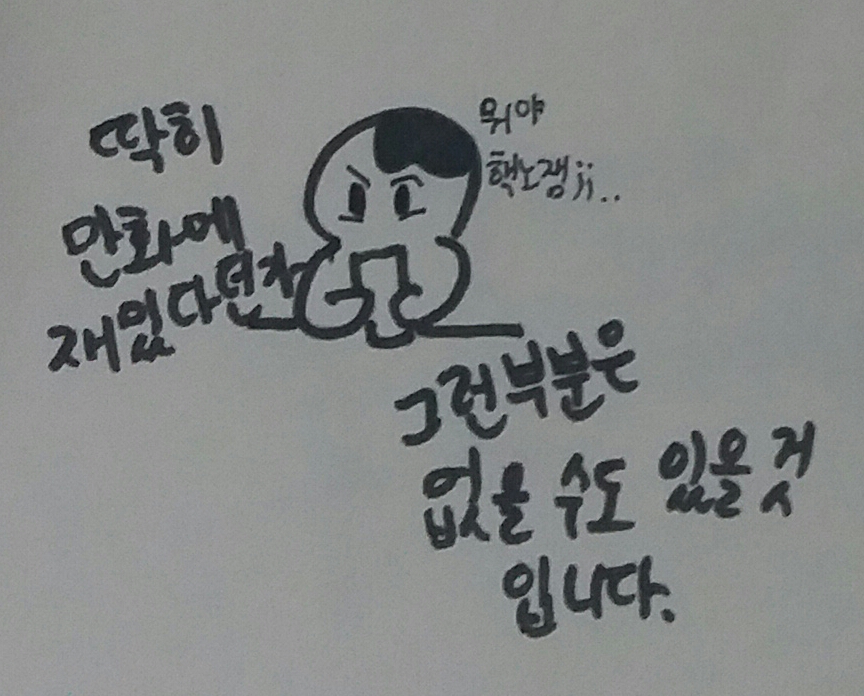 딱히
만화에
재밌다던가
뭐야
핵노잼ㅠㅠ..
그런부분은
없을 수도 있을 것
입니다.